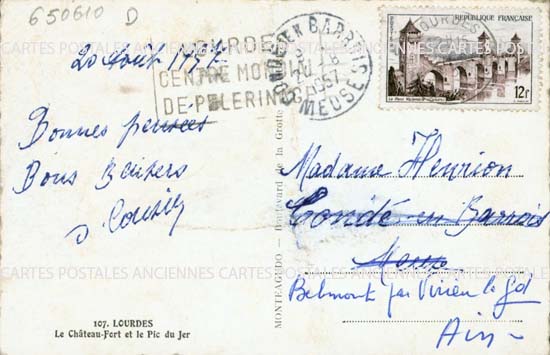 650610 D
20 Août 1957
Bonnes pensées
Bons Baisers
LOURDES
CENTRE MONDIAL
DE PELERINAGE
CONDE EN BARROIS
20 -8
1957
MEUSE
LOURDES
REPUBLIQUE FRANÇAISE
12F
Madame Henrion
Condé-en-Barrois
Meuse
Belmont par Virieu le Gd
Ain
MONTEAGUDO - Boulevard de la Grotte
CARTES POSTALES ANCIENNES CARTES POSTALES ANCIENNES CARTES POSTALES ANCIENNES
107. LOURDES
Le Château-Fort et le Pic du Jer